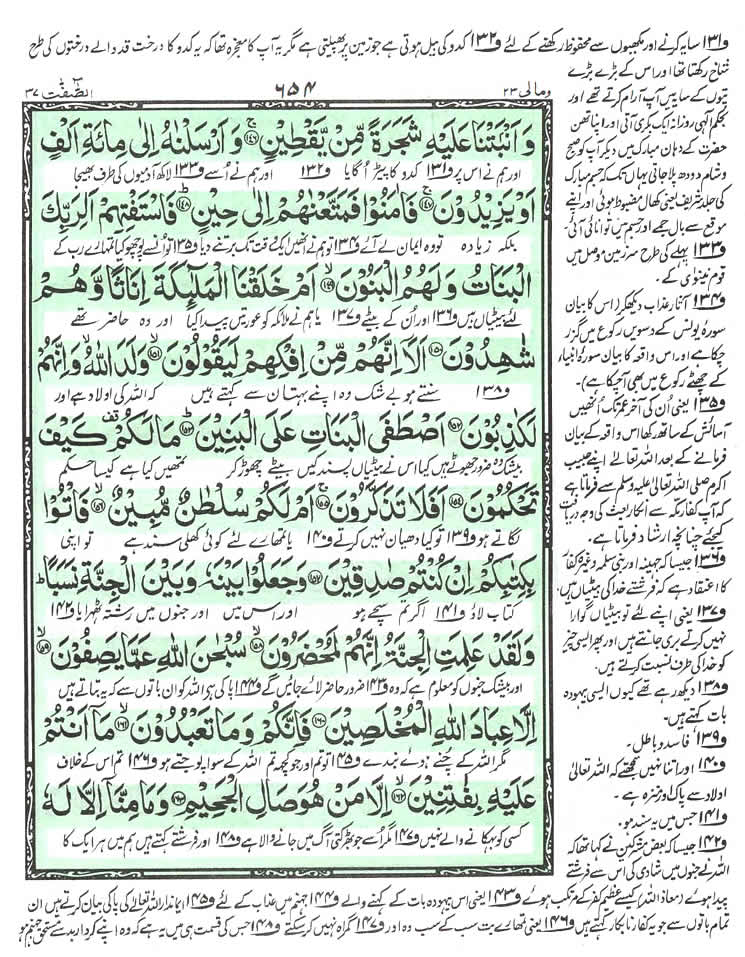 و۱۳۱ سایہ کرنے اور مکھیوں سے محفوظ رکھنے کے لئے و۱۳۲ کدو کی بیل ہوتی ہے جو زمین پر پھیلتی ہے مگر یہ آپ کا معجزہ تھا کہ یہ کدو کا درخت قد والے درختوں کی طرح
شاخ رکھتا تھا اور اس کے بڑے بڑے
پتوں کے سایہ میں آپ آرام کرتے تھے اور
بحکم الٰہی روزانہ ایک بکری آتی اور اپنا تھن
حضرت کے دہان مبارک میں دیکر آپ کو صبح
و شام دودھ پلا جاتی یہاں تک کہ جسم مبارک
کی جلد شریف یعنی کھال مضبوط ہوئی اور اپنے
موقع سے بال جمے اور جسم میں توانائی آئی۔
و۱۳۳ پہلے کی طرح سرزمین موصل میں
قوم نینویٰ کے۔
و۱۳۴ آثار عذاب دیکھ کر (اس کا بیان
سورۂ یونس کے دسویں رکوع میں گزر
چکا ہے اور اس واقعہ کا بیان سورۂ انبیاء
کے چھٹے رکوع میں بھی آچکا ہے)۔
و۱۳۵ یعنی اُن کی آخر عمر تک اُنھیں
آسائش کے ساتھ رکھا اس واقعہ کے بیان
فرمانے کے بعد اللہ تعالیٰ اپنے حبیب
اکرم صلی اللہ تعالیٰ علیہ وسلم سے فرماتا ہے
کہ آپ کفار مکہ سے انکار بعث کی وجہ دریافت
کیجئے چنانچہ ارشاد فرماتا ہے۔
و۱۳۶ جیسا کہ جہینہ اور بنی سلمہ وغیرہ کفار
کا اعتقاد ہے کہ فرشتے خدا کی بیٹیاں ہیں۔
و۱۳۷ یعنی اپنے لئے تو بیٹیاں گوارا
نہیں کرتے بری جانتے ہیں اور پھر ایسی چیز
کو خدا کی طرف نسبت کرتے ہیں۔
و۱۳۸ دیکھ رہے تھے کیوں ایسی بیہودہ
بات کہتے ہیں۔
و۱۳۹ فاسد و باطل۔
و۱۴۰ اور اتنا نہیں سمجھتے کہ اللہ تعالیٰ
اولاد سے پاک اور منزہ ہے۔
و۱۴۱ جس میں یہ سند ہو۔
و۱۴۲ جیسا کہ بعض مشرکین نے کہا تھا کہ
اللہ نے جنوں میں شادی کی اس سے فرشتے
ومالی ۲۳ ۶۵۴ الصّٰفّٰت ۳۷
وَ اَنْۢبَتْنَا عَلَیْهِ شَجَرَةً مِّنْ یَّقْطِیْنٍ ۱۴۶ وَ اَرْسَلْنٰهُ اِلٰى مِائَةِ اَلْفٍ
اور ہم نے اس پر و۱۳۱ کدو کا پیڑ اُگایا و۱۳۲ اور ہم نے اُسے و۱۳۳ لاکھ آدمیوں کی طرف بھیجا
اَوْ یَزِیْدُوْنَ ۱۴۷ فَاٰمَنُوْا فَمَتَّعْنٰهُمْ اِلٰى حِیْنٍ ۱۴۸ فَاسْتَفْتِهِمْ اَلِرَبِّكَ
بلکہ زیادہ تو وہ ایمان لے آئے و۱۳۴ تو ہم نے انھیں ایک وقت تک برتنے دیا و۱۳۵ تو اُن سے پوچھو کیا تمہارے رب کے
الْبَنَاتُ وَ لَهُمُ الْبَنُوْنَ ۱۴۹ اَمْ خَلَقْنَا الْمَلٰٓىِٕكَةَ اِنَاثًا وَّ هُمْ
لئے بیٹیاں ہیں و۱۳۶ اور اُن کے بیٹے و۱۳۷ یا ہم نے ملائکہ کو عورتیں پیدا کیا اور وہ حاضر تھے
شٰهِدُوْنَ ۱۵۰ اَلَاۤ اِنَّهُمْ مِّنْ اِفْكِهِمْ لَیَقُوْلُوْنَ ۱۵۱ وَلَدَ اللّٰهُ وَ اِنَّهُمْ
و۱۳۸ سنتے ہو بے شک وہ اپنے بہتان سے کہتے ہیں کہ اللہ کی اولاد ہے اور
لَكٰذِبُوْنَ ۱۵۲ اَصْطَفَى الْبَنَاتِ عَلَى الْبَنِیْنَ ۱۵۳ مَا لَكُمْ كَیْفَ
بیشک ضرور جھوٹے ہیں کیا اس نے بیٹیاں پسند کیں بیٹے چھوڑ کر تمھیں کیا ہے کیسا حکم
تَحْكُمُوْنَ ۱۵۴ اَفَلَا تَذَكَّرُوْنَ ۱۵۵ اَمْ لَكُمْ سُلْطٰنٌ مُّبِیْنٌ ۱۵۶ فَاْتُوْا
لگاتے ہو و۱۳۹ تو کیا دھیان نہیں کرتے و۱۴۰ یا تمھارے لئے کوئی کھلی سند ہے تو اپنی
بِكِتٰبِكُمْ اِنْ كُنْتُمْ صٰدِقِیْنَ ۱۵۷ وَ جَعَلُوْا بَیْنَهٗ وَ بَیْنَ الْجِنَّةِ نَسَبًا ؕ
کتاب لاؤ و۱۴۱ اگر تم سچے ہو اور اس میں اور جنوں میں رشتہ ٹھہرایا و۱۴۲
وَ لَقَدْ عَلِمَتِ الْجِنَّةُ اِنَّهُمْ لَمُحْضَرُوْنَ ۱۵۸ سُبْحٰنَ اللّٰهِ عَمَّا یَصِفُوْنَ ۱۵۹
اور بیشک جنوں کو معلوم ہے کہ وہ و۱۴۳ ضرور حاضر لائے جائیں گے و۱۴۴ پاکی ہے اللہ کو ان باتوں سے کہ یہ بتاتے ہیں
اِلَّا عِبَادَ اللّٰهِ الْمُخْلَصِیْنَ ۱۶۰ فَاِنَّكُمْ وَ مَا تَعْبُدُوْنَ ۱۶۱ مَاۤ اَنْتُمْ
مگر اللہ کے چُنے ہوئے بندے و۱۴۵ تو تم اور جو کچھ تم اللہ کے سوا پوجتے ہو و۱۴۶ تم اس کے خلاف
عَلَیْهِ بِفٰتِنِیْنَ ۱۶۲ اِلَّا مَنْ هُوَ صَالِ الْجَحِیْمِ ۱۶۳ وَ مَا مِنَّاۤ اِلَّا لَهٗ
کسی کو بہکانے والے نہیں و۱۴۷ مگر اُسے جو بھڑکتی آگ میں جانے والا ہے و۱۴۸ اور فرشتے کہتے ہیں ہم میں ہر ایک کا
پیدا ہوئے (معاذ اللہ) کیسے عظیم کفر کے مرتکب ہوئے و۱۴۳ یعنی اس بیہودہ بات کے کہنے والے و۱۴۴ جہنم میں عذاب کے لئے و۱۴۵ ایماندار اللہ تعالیٰ کی پاکی بیان کرتے ہیں ان
تمام باتوں سے جو یہ کفار نابکار کہتے ہیں و۱۴۶ یعنی تمھارے بت سب کے سب وہ اور و۱۴۷ گمراہ نہیں کر سکتے و۱۴۸ جس کی قسمت ہی میں یہ ہے کہ وہ اپنے کردار بد سے مستحق جہنم ہو